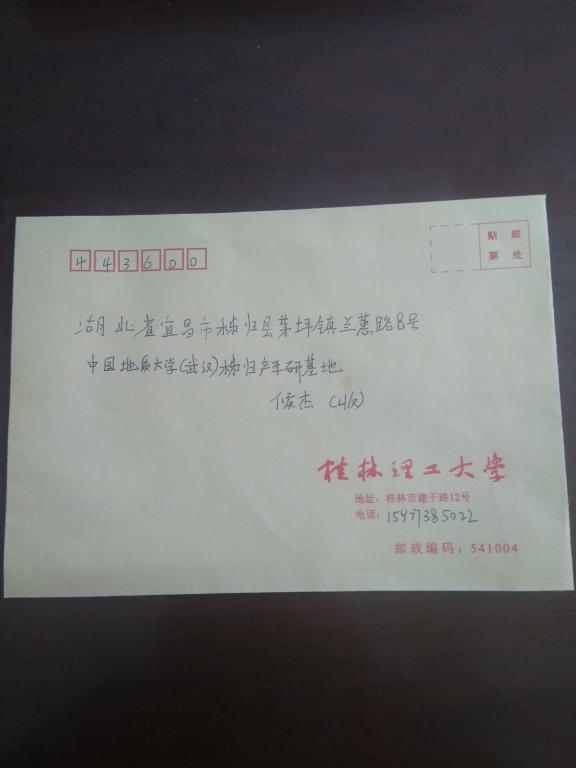 443600
贴 邮
票 处
湖北省宜昌市秭归县茅坪镇兰蕙路8号
中国地质大学(武汉)秭归产学研基地
侯杰 (收)
桂林理工大学
地址：桂林市建干路12号
电话：15977385022
邮政编码：541004